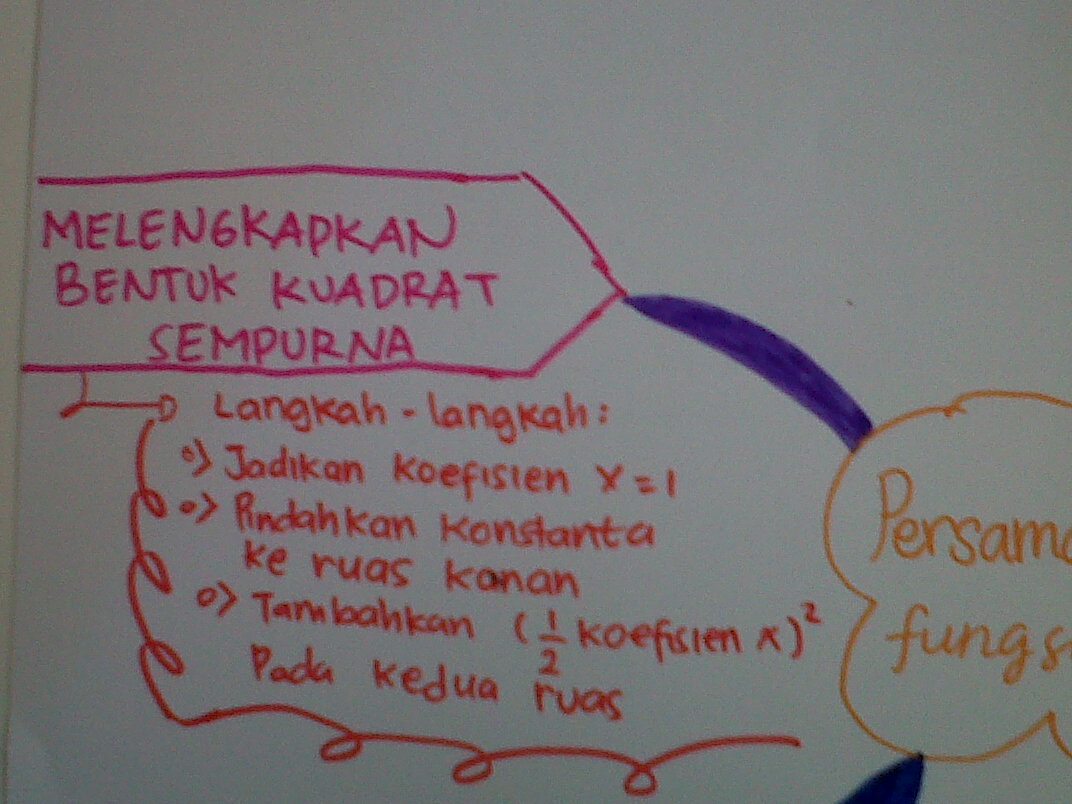 MELENGKAPKAN
BENTUK KUADRAT
SEMPURNA
Langkah - langkah :
Jadikan koefisien x = 1
Pindahkan konstanta
ke ruas kanan
Tambahkan (1/2 koefisien x)²
Pada kedua ruas
Persama
fungs